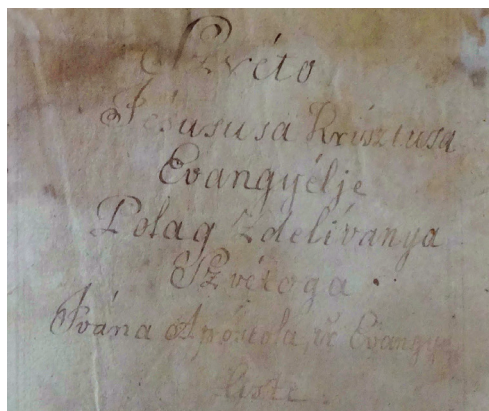 Szvéto
Jésususa Krisztusa
Evangyélje
Polag Zdelívanya
Szvétoga
Ivána Apostola, i Evangye
liszte